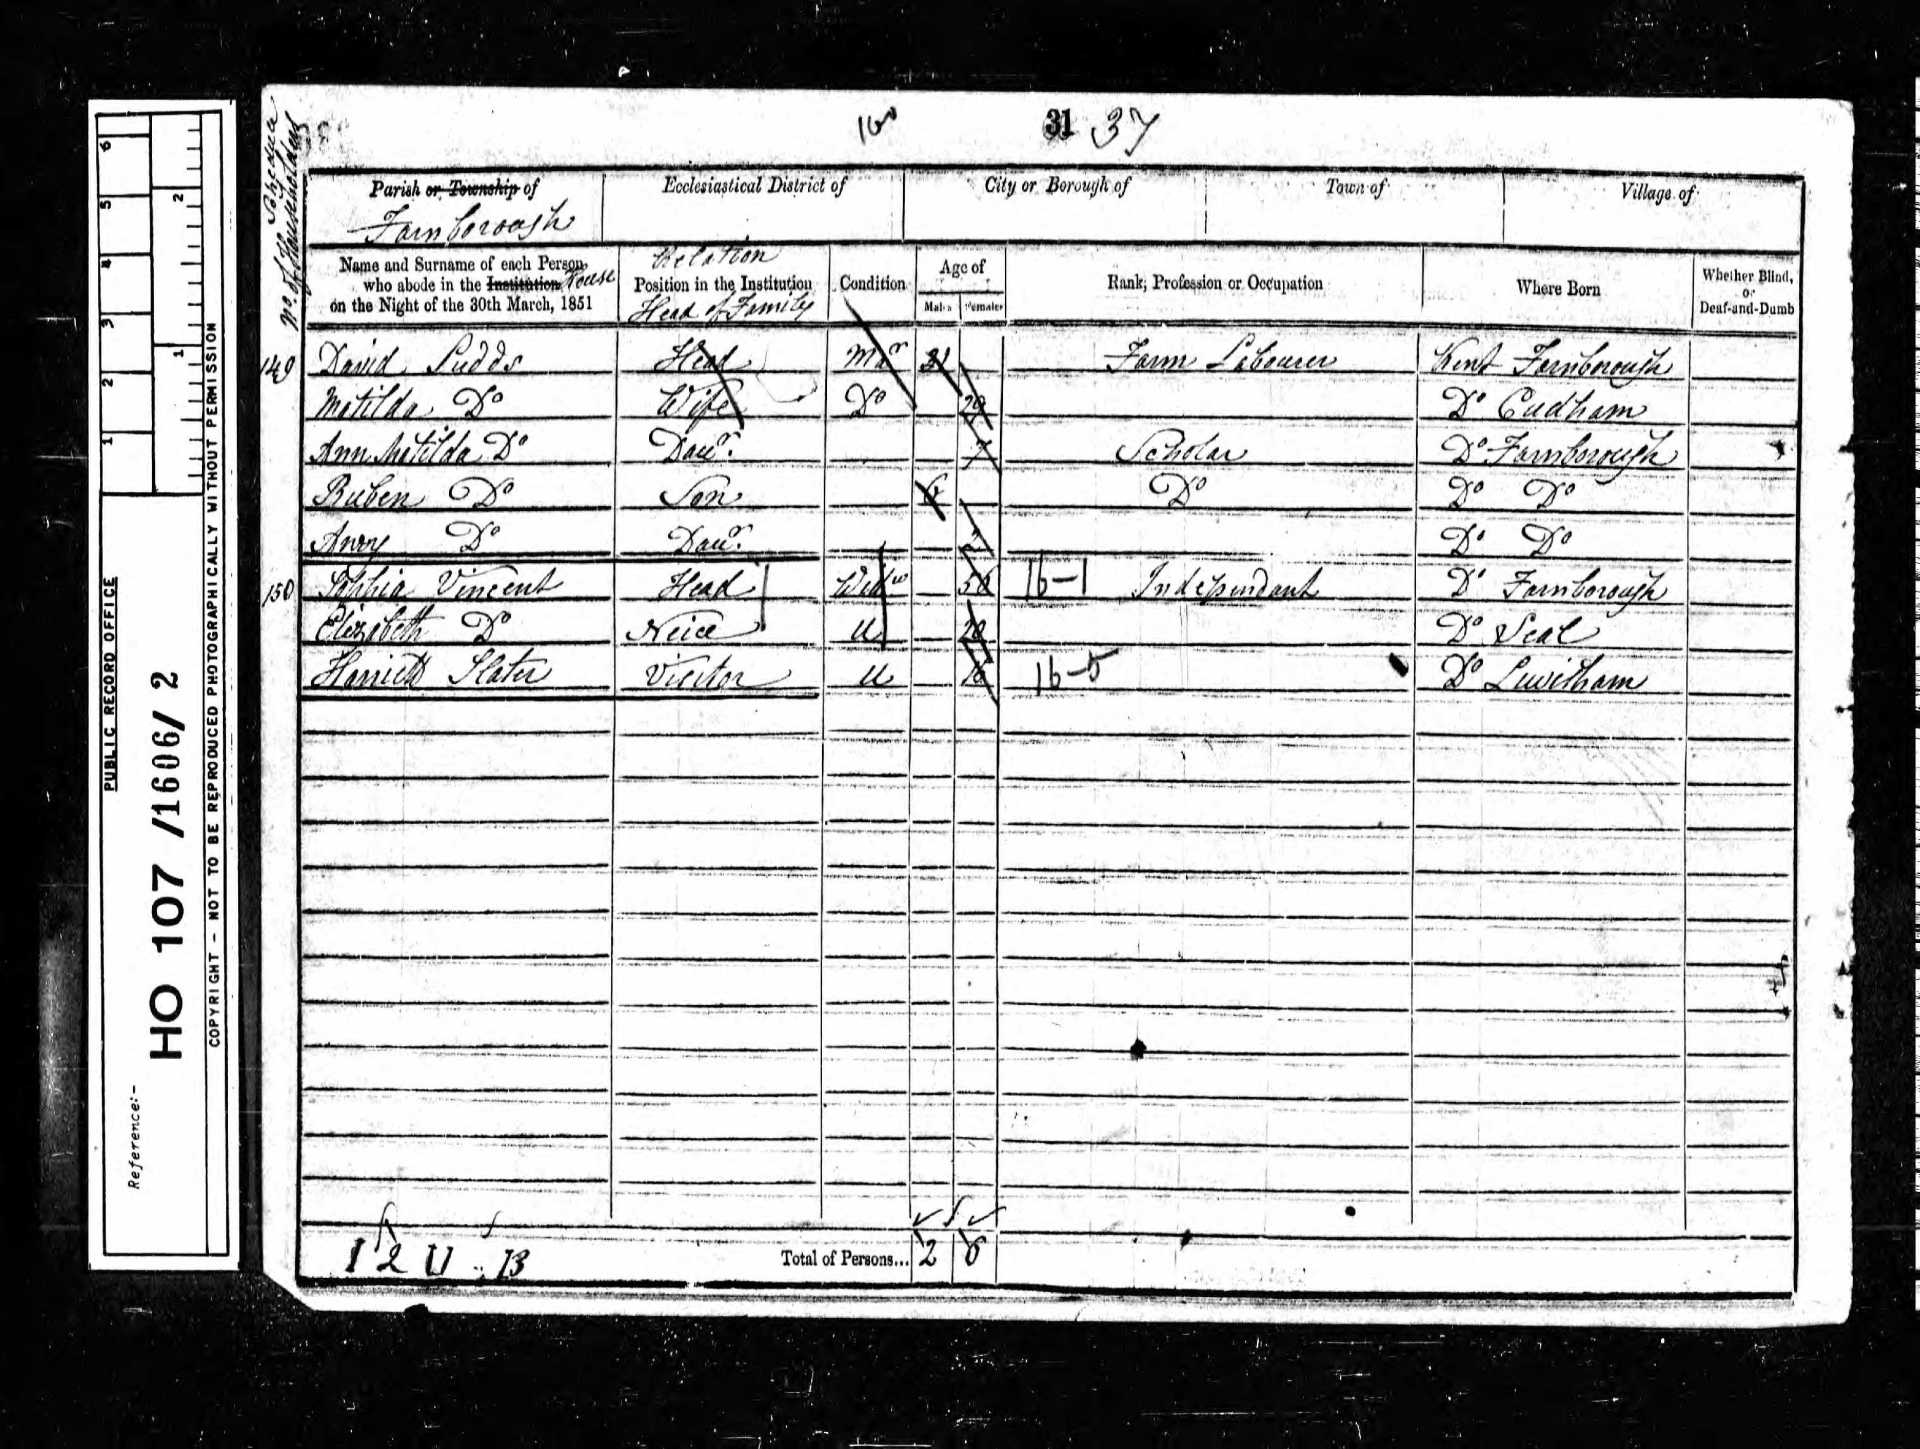 160 31 37
No. of Householders Schedule
Parish or Township of Ecclesiastical District of City or Borough of Town of Village of
Farnborough
Name and Surname of each Person who abode in the Institution House on the Night of the 30th March, 1851
Relation
Position in the Institution
Head of Family
Condition
Age of
Males Females
Rank, Profession or Occupation
Where Born
Whether Blind, or Deaf-and-Dumb
149 David Sudds Head Mar 31 Farm Labourer Kent Farnborough
Matilda Do Wife Do 29 Do Cudham
Ann Matilda Do Daur. 7 Scholar Do Farnborough
Ruben Do Son 6 Do Do Do
Do Daur. Do Do
150 Sophia Vincent Head Widw 16-1 Independant Do Farnborough
Elizabeth Do Neice U 20 Do Seal
Harriett Slater Visitor U 16-5 Do Lewisham
Total of Persons... 2 6
1 2 U B
PUBLIC RECORD OFFICE
1 2 3 4 5 6
1 2
Reference:-
HO 107 /1606/ 2
COPYRIGHT - NOT TO BE REPRODUCED PHOTOGRAPHICALLY WITHOUT PERMISSION